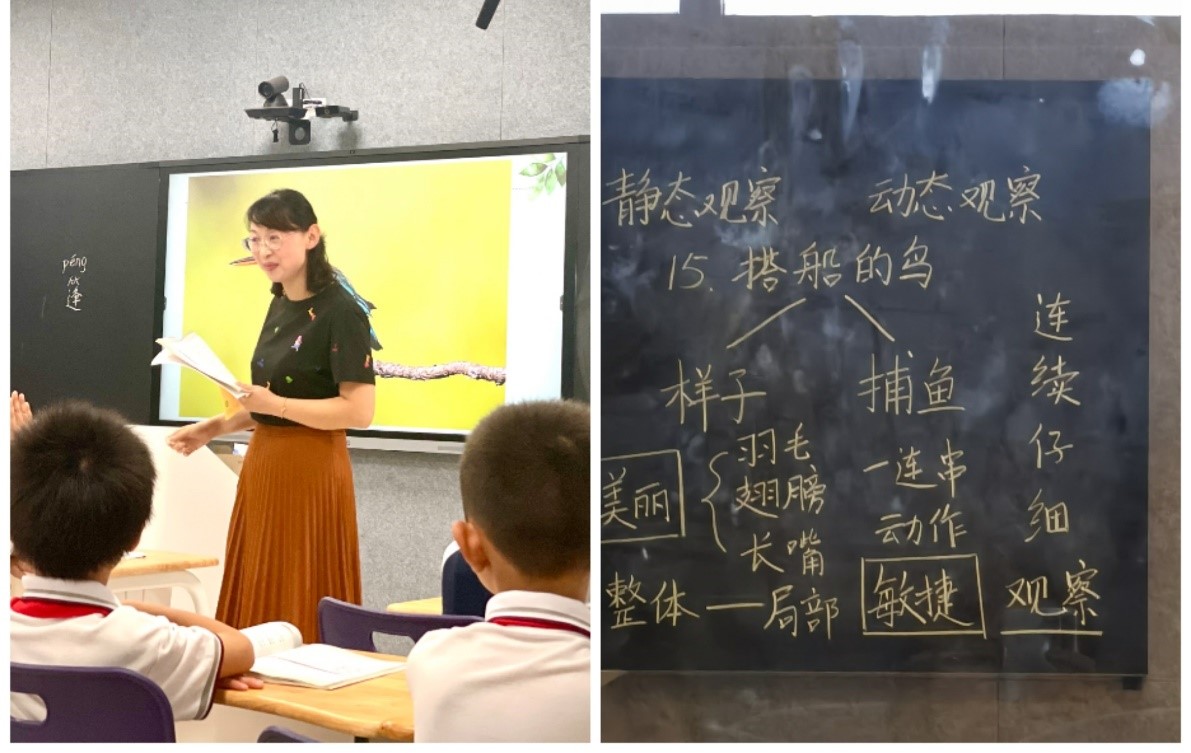 péng
篷
静态观察 动态观察
15. 搭船的鸟
样子 捕鱼
美丽
羽毛
翅膀
长嘴
整体——局部
一连串
动作
敏捷
连
续
仔
细
观察